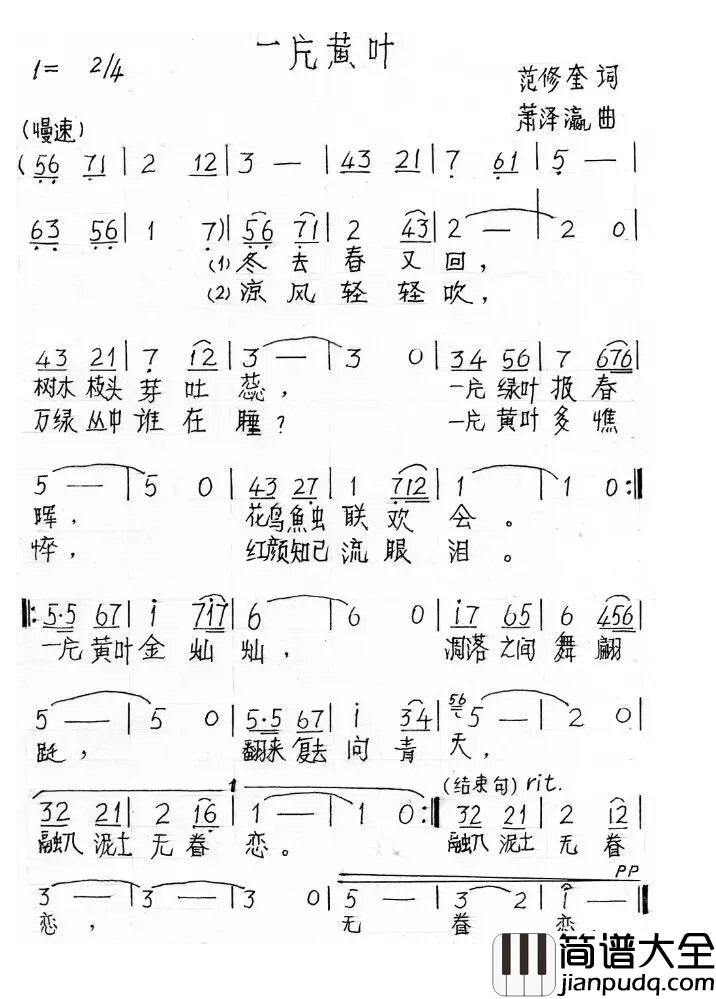 一片黄叶
1= 2/4
范修奎词
萧泽瀛曲
(慢速)
(56 71 | 2 12 | 3 — | 43 21 | 7 61 | 5 — |
63 56 | 1 7) | 56 71 | 2 43 | 2 — | 2 0
(1)冬去春又回，
(2)凉风轻轻吹，
43 21 | 7 12 | 3 — | 3 0 | 34 56 | 7 676 |
树木枝头芽吐蕊， 一片绿叶报春
万绿丛中谁在睡? 一片黄叶多憔
5 — | 5 0 | 43 27 | 1 712 | 1 — | 1 0 :||
晖， 花鸟鱼虫联欢会。
悴， 红颜知己流眼泪。
||: 5·5 67 | i 7i7 | 6 — | 6 0 | i7 65 | 6 456 |
一片黄叶金灿灿， 凋落之间舞翩
5 — | 5 0 | 5·5 67 | i 34 | 56 5 — | 2 0
跹， 翻来复去问青天，
1 (结束句) rit.
32 21 | 2 16 | 1 — | 1 0 :|| 32 21 | 2 12 |
融入泥土无眷恋。 融入泥土无眷
PP
3 — | 3 — | 3 0 | 5 — | 3 2 | i — ||
恋， 无眷恋
简谱大全
jianpudq.com